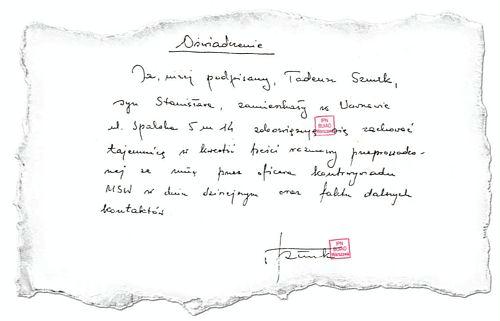 Oświadczenie
Ja, niżej podpisany, Tadeusz Szmuk,
syn Stanisława, zamieszkały w Warszawie
ul. Spalska 5 m 14 zobowiązuję się zachować
tajemnicę w kwestii treści rozmowy przeprowadzo-
nej ze mną przez oficera kontrwywiadu
MSW w dniu dzisiejszym oraz faktu dalszych
kontaktów
IPN
BUIAD
Warszawa
IPN
BUIAD
Warszawa